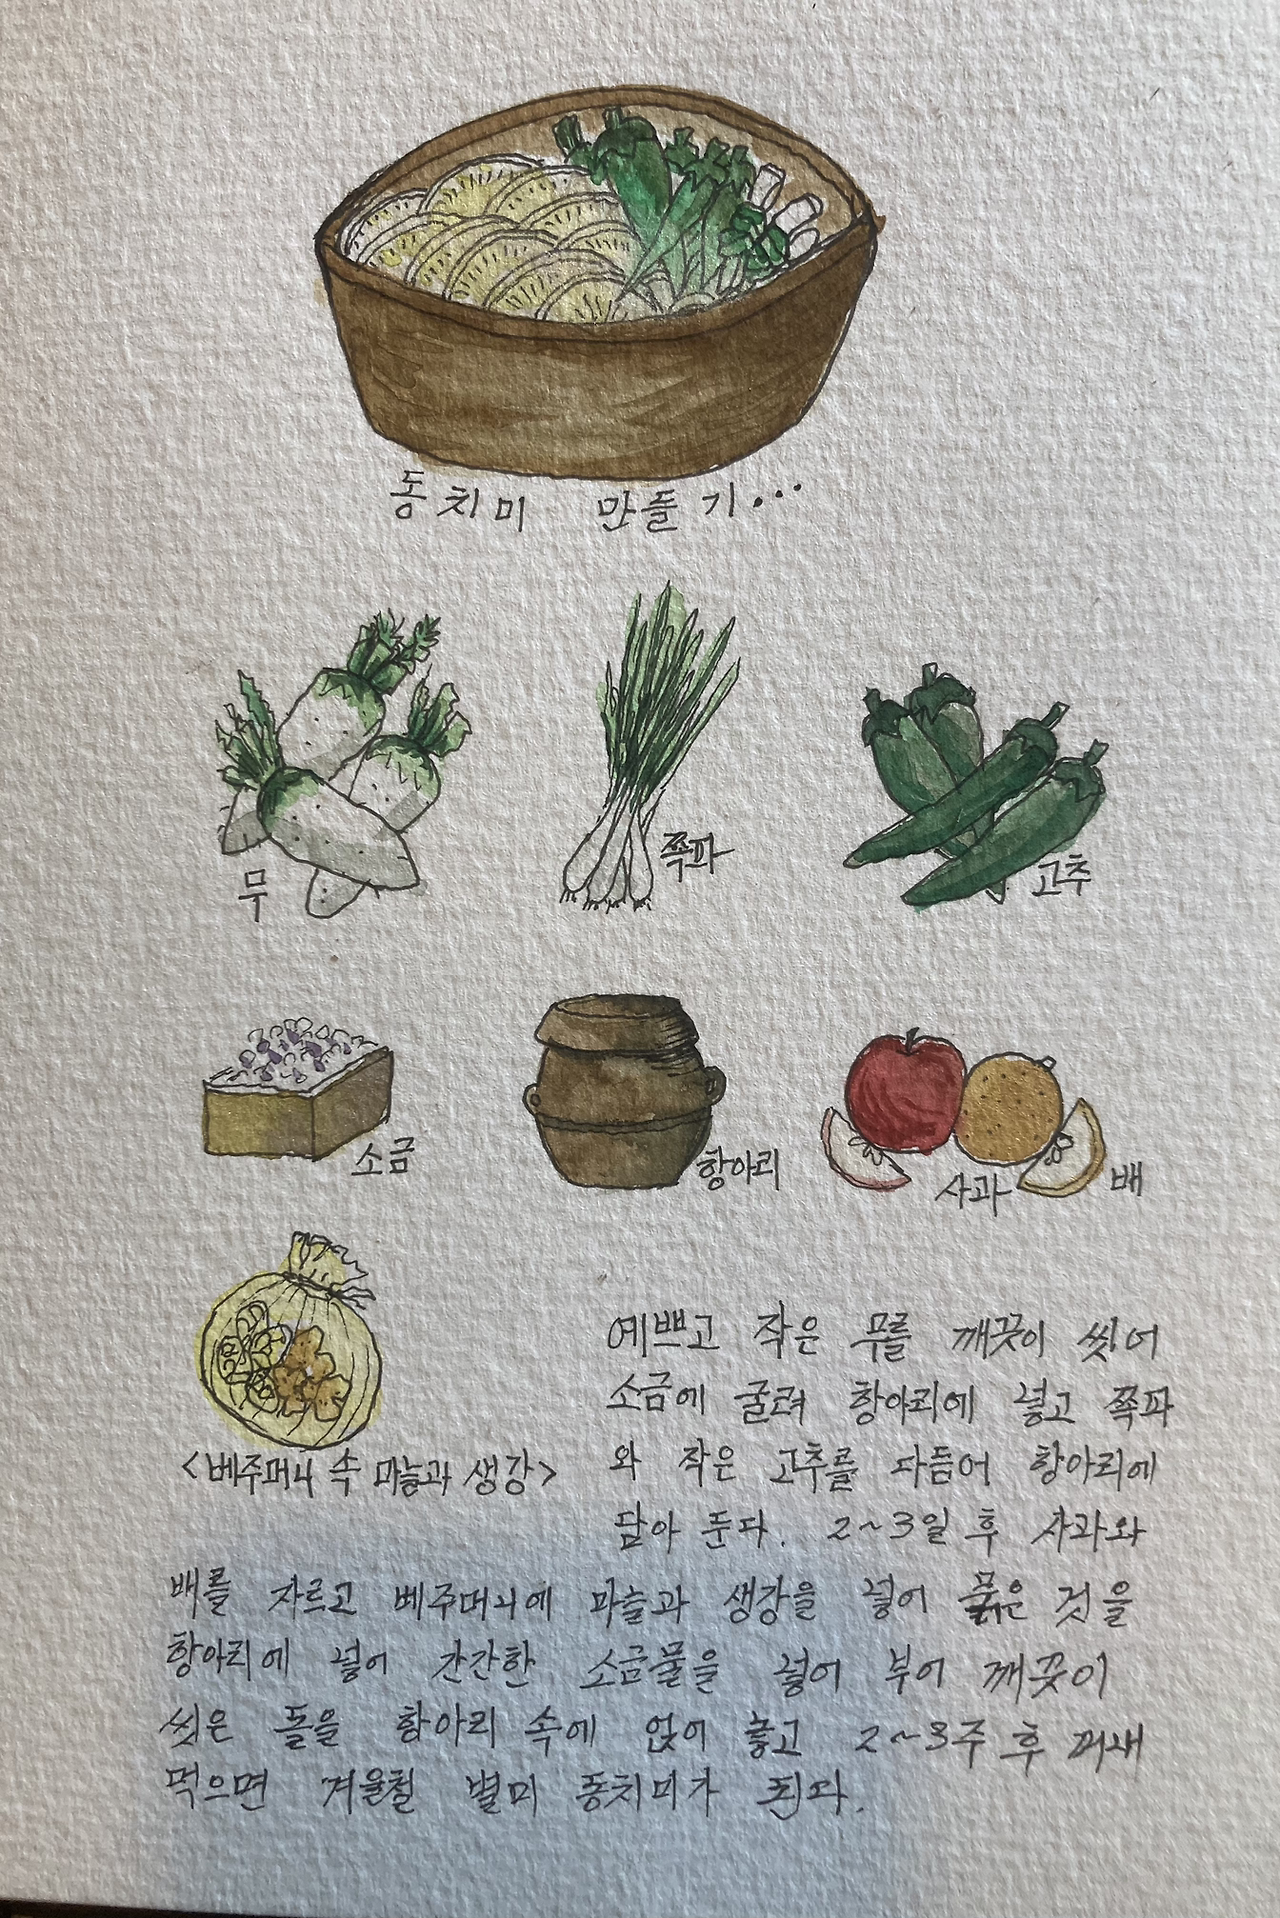 동치미 만들기...
무
쪽파
고추
소금
항아리
사과
배
<베주머니 속 마늘과 생강>
예쁘고 작은 무를 깨끗이 씻어
소금에 굴려 항아리에 넣고 쪽파
와 작은 고추를 다듬어 항아리에
담아 둔다. 2~3일 후 사과와
배를 자르고 베주머니에 마늘과 생강을 넣어 묶은 것을
항아리에 넣어 간간한 소금물을 넣어 부어 깨끗이
씻은 돌을 항아리 속에 얹어 놓고 2~3주 후 꺼내
먹으면 겨울철 별미 동치미가 된다.